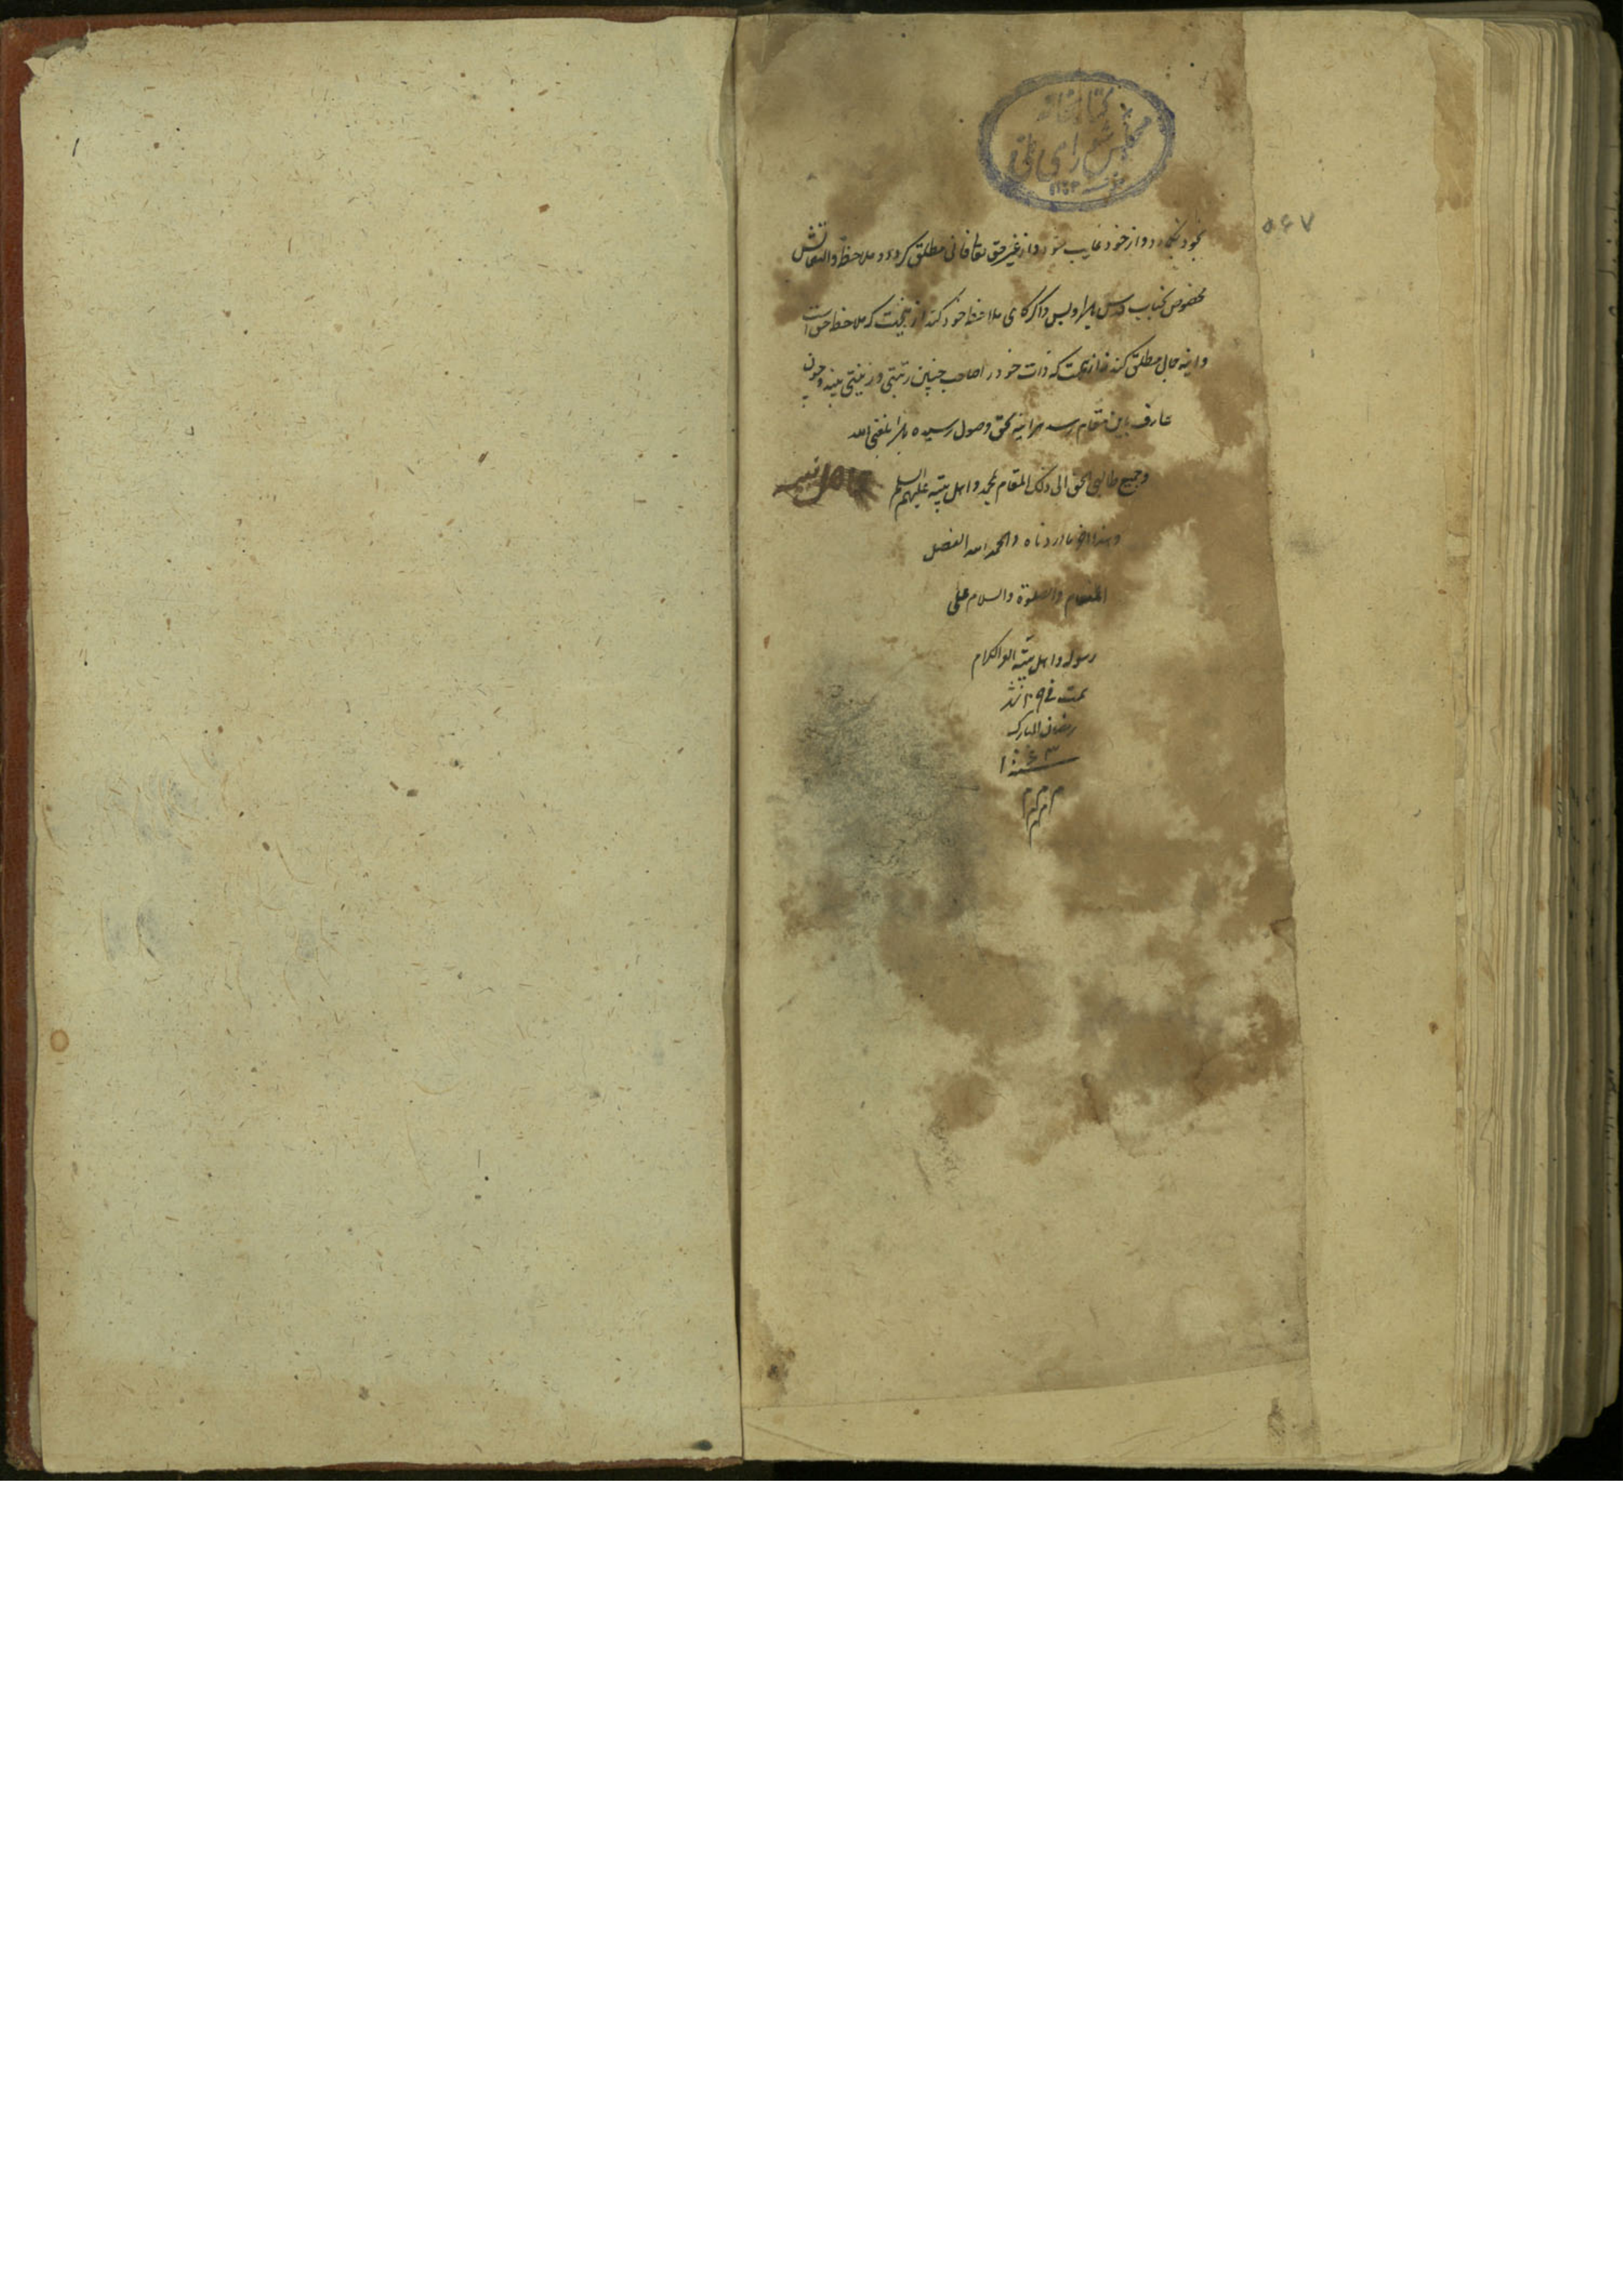 کتابخانه
مجلس شورای ملی
۵۶۷
بخود نگاه و از خود غایب شود و از غیر حق تعالی فانی مطلق کردد و ملاحظه والتفاتش
مخصوص بجناب قدس باشد و بس و اگر گاهی ملاحظه خود کند از اینجهت که ملاحظ حق است
حال مطلق کند نه از اینجهت که ذات خود را صاحب چنین رتبتی و زینتی بیند و چون
عارف باین مقام رسد هراینه بحق وصول رسیده باشد بلغنی الله
وجمیع طالبی الحق الی ذلک المقام بمحمد و اهل بیته علیهم السلام
وهذا اخر ما اردناه والحمد لله المفضل
المنعام والصلوة والسلام علی
رسوله و اهل بیته الکرام
تمت فی ۲۹ شهر
رمضان المبارک